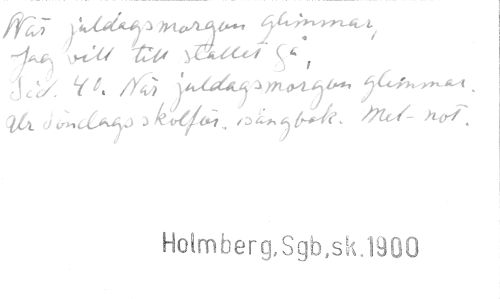 När juldagsmorgon glimmar,
Jag vill till stallet gå,
Sid. 40. När juldagsmorgon glimmar.
Ur Söndagsskolför. sångbok. Mel-not.
Holmberg,Sgb,sk.1900